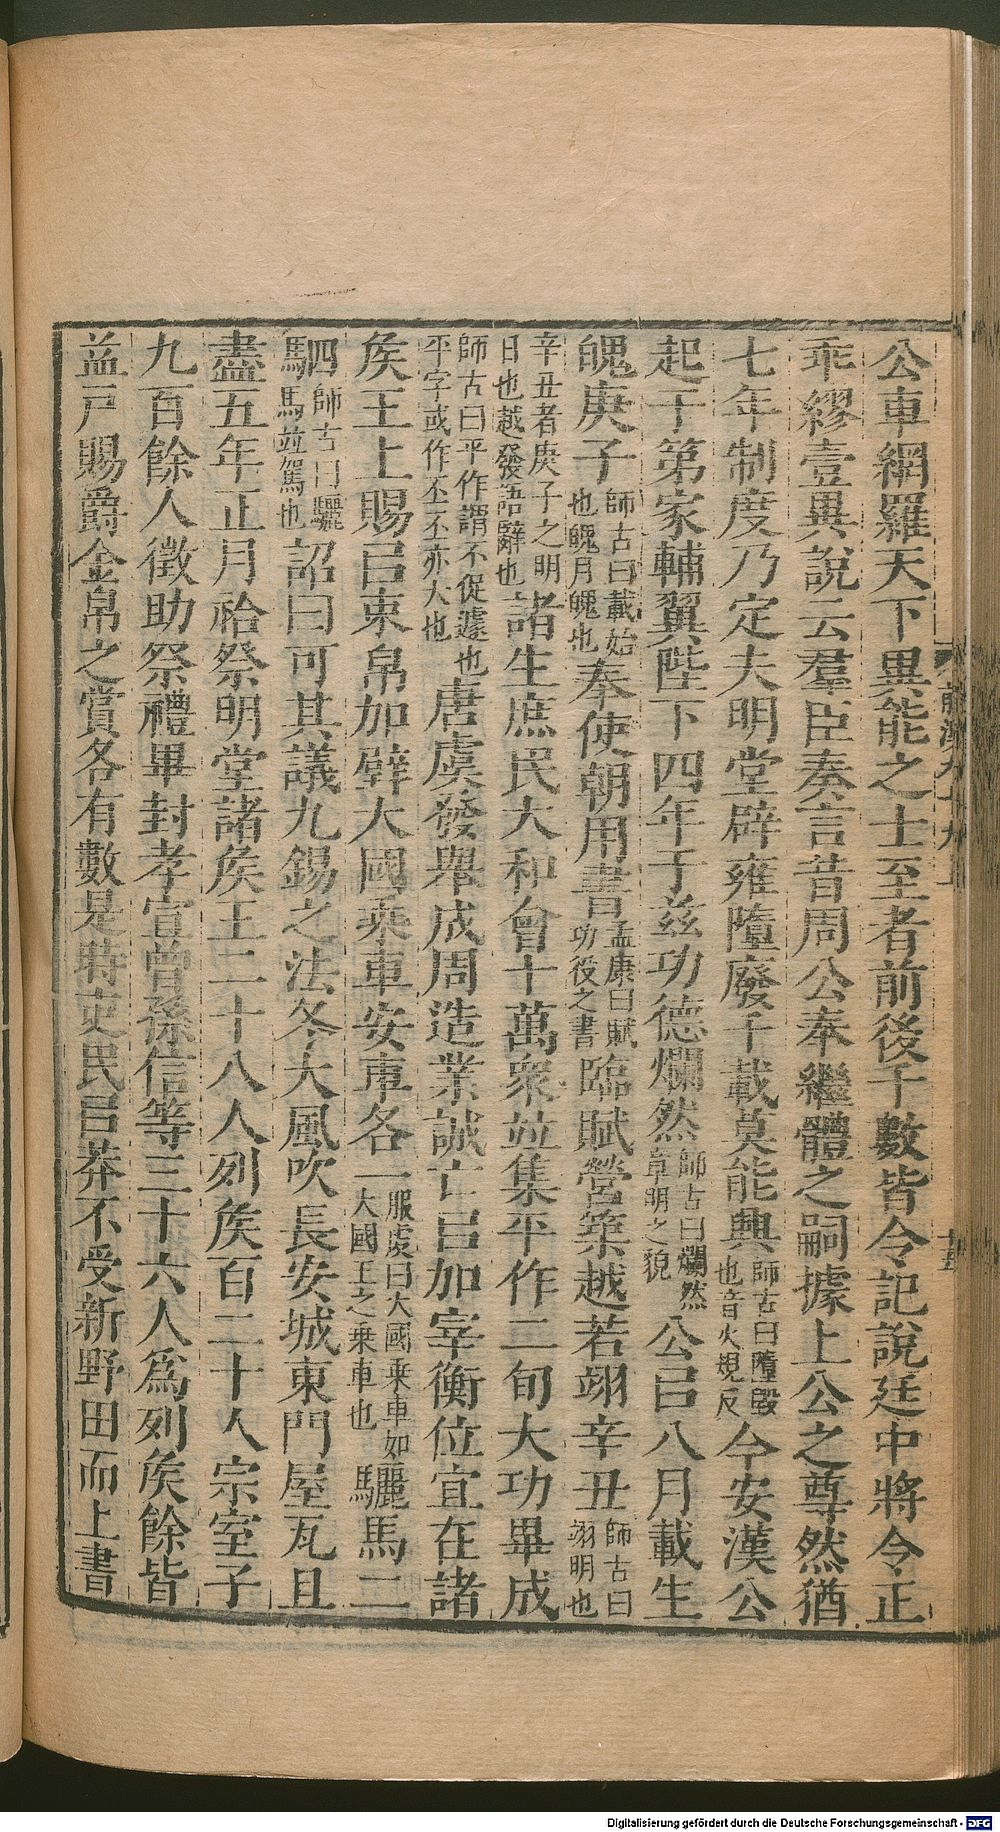 公車網羅天下異能之士至者前後千數皆令記說廷中將令正
乖繆壹異說云羣臣奏言昔周公奉繼體之嗣據上公之尊然猶
七年制度乃定夫明堂辟雍墮廢千載莫能興師古曰墮毀也音火規反今安漢公
起于第家輔翼陛下四年于兹功德爛然師古曰爛然章明之貌公㠯八月載生
魄庚子師古曰載始也魄月魄也奉使朝用書孟康曰賦功役之書臨賦營築越若翊辛丑師古曰翊明也
辛丑者庚子之明日也越發語辭也諸生庶民大和會十萬衆並集平作二旬大功畢成
師古曰平作謂不促遽也平字或作丕丕亦大也唐虞發舉成周造業誠亡㠯加宰衡位宜在諸
矦王上賜㠯束帛加璧大國乘車安車各一服虔曰大國乘車如大國王之乘車也驪馬二
駟師古曰驪馬並駕也詔曰可其議九錫之法冬大風吹長安城東門屋瓦且
盡五年正月祫祭明堂諸矦王二十八人列矦百二十人宗室子
九百餘人徵助祭禮畢封孝宣曾孫信等三十六人爲列矦餘皆
益戸賜爵金帛之賞各有數是時吏民㠯莽不受新野田而上書
十五
Digitalisierung gefördert durch die Deutsche Forschungsgemeinschaft - DFG